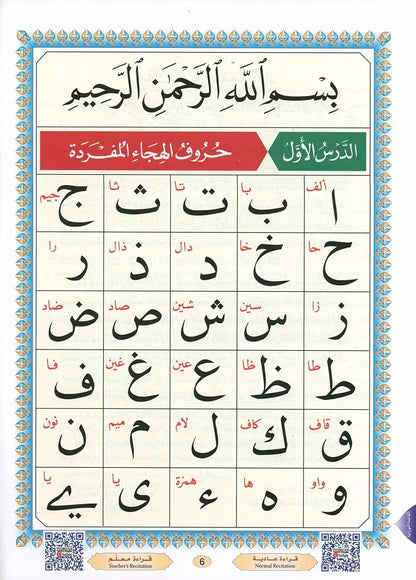 بِسْمِ ٱللَّهِ ٱلرَّحْمَٰنِ ٱلرَّحِيمِ
الدَّرْسُ الْأَوَّلُ حُرُوفُ الْهِجَاءِ الْمُفْرَدَةِ
ألف با تا ثا جيم
ا ب ت ث ج
حا خا دال ذال را
ح خ د ذ ر
زا سين شين صاد ضاد
ز س ش ص ض
طا ظا عين غين فا
ط ظ ع غ ف
قاف كاف لام ميم نون
ق ك ل م ن
واو ها همزة يا يا
و ه ء ى ے
قراءة عادية 6 قراءة معلم
Normal Recitation Teacher's Recitation